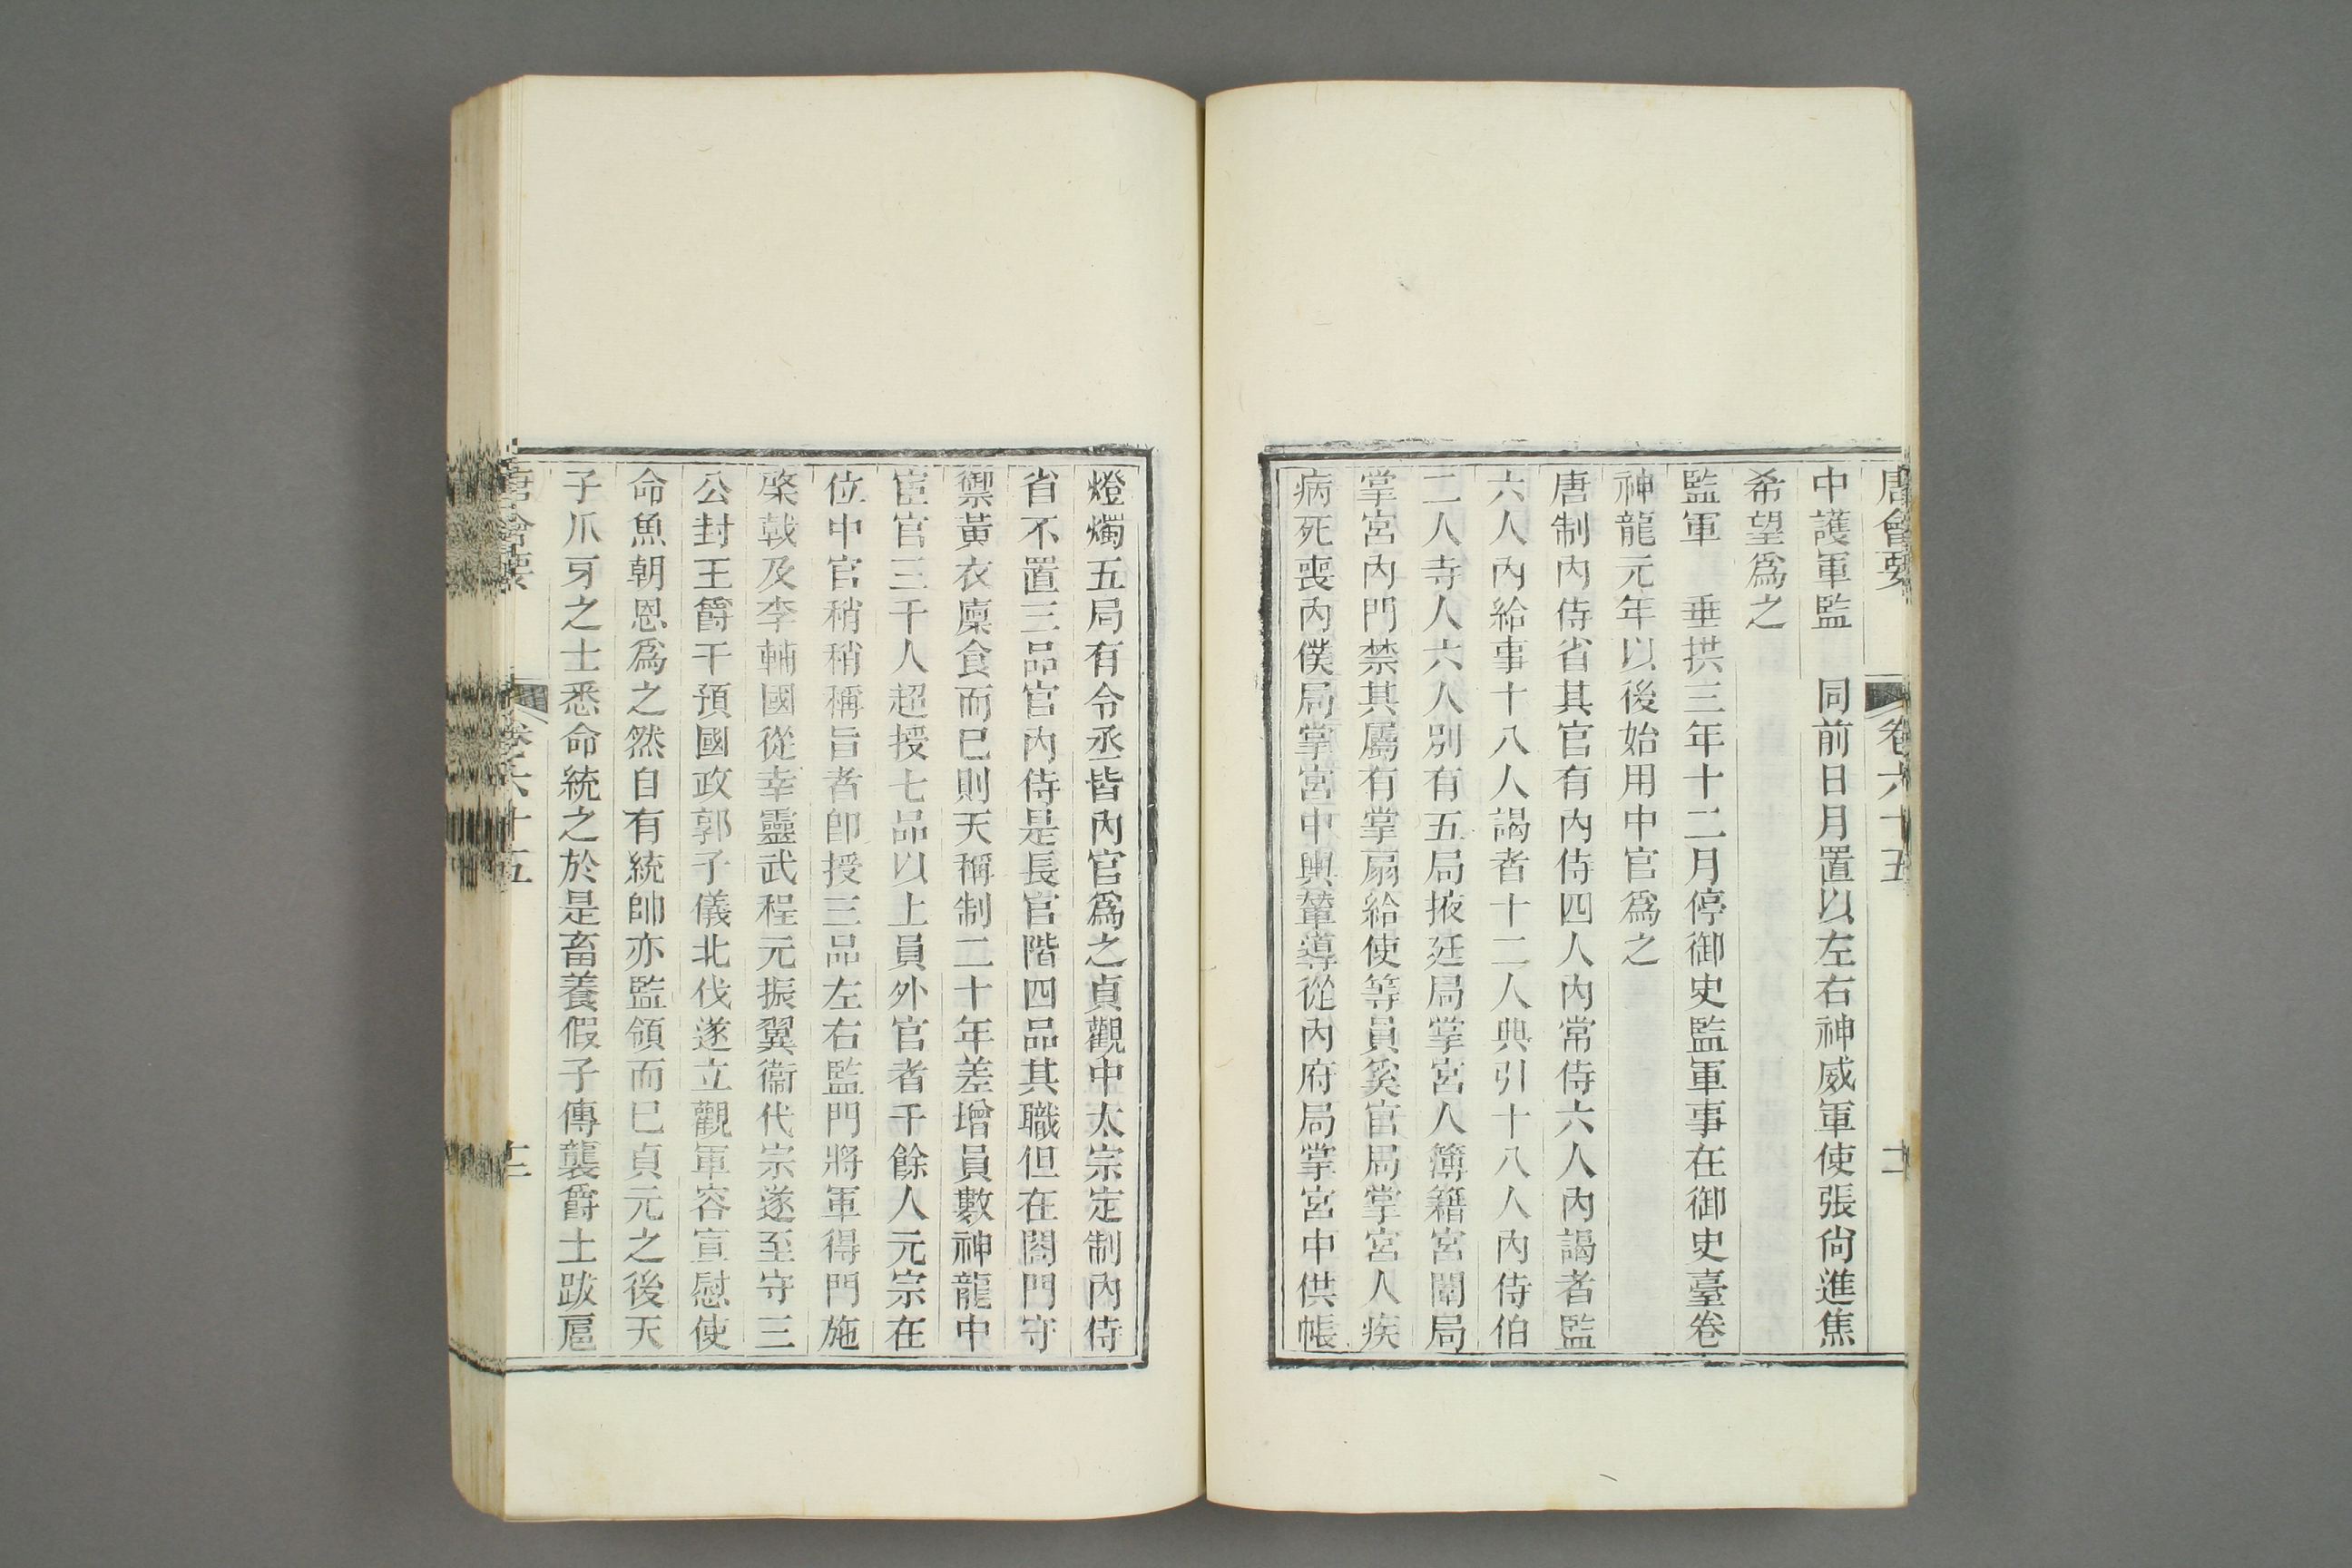 唐會要 卷六十五
中護軍監　同前日月置以左右神威軍使張尙進焦
希望爲之
監軍　垂拱三年十二月停御史監軍事在御史臺卷
神龍元年以後始用中官爲之
唐制內侍省其官有內侍四人內常侍六人內謁者監
六人內給事十八人謁者十二人典引十八人內侍伯
二人寺人六人別有五局掖廷局掌宮人簿籍宮闈局
掌宮內門禁其屬有掌扇給使等員奚官局掌宮人疾
病死喪內僕局掌宮中輿輦導從內府局掌宮中供帳
燈燭五局有令丞皆內官爲之貞觀中太宗定制內侍
省不置三品官內侍是長官階四品其職但在閤門守
禦黃衣廩食而已則天稱制二十年差增員數神龍中
宦官三千人超授七品以上員外官者千餘人元宗在
位中官稍稍稱旨者卽授三品左右監門將軍得門施
棨戟及李輔國從幸靈武程元振翼衞代宗遂至守三
公封王爵干預國政郭子儀北伐遂立觀軍容宣慰使
命魚朝恩爲之然自有統帥亦監領而已貞元之後天
子爪牙之士悉命統之於是畜養假子傳襲爵土跋扈
唐會要 卷六十五